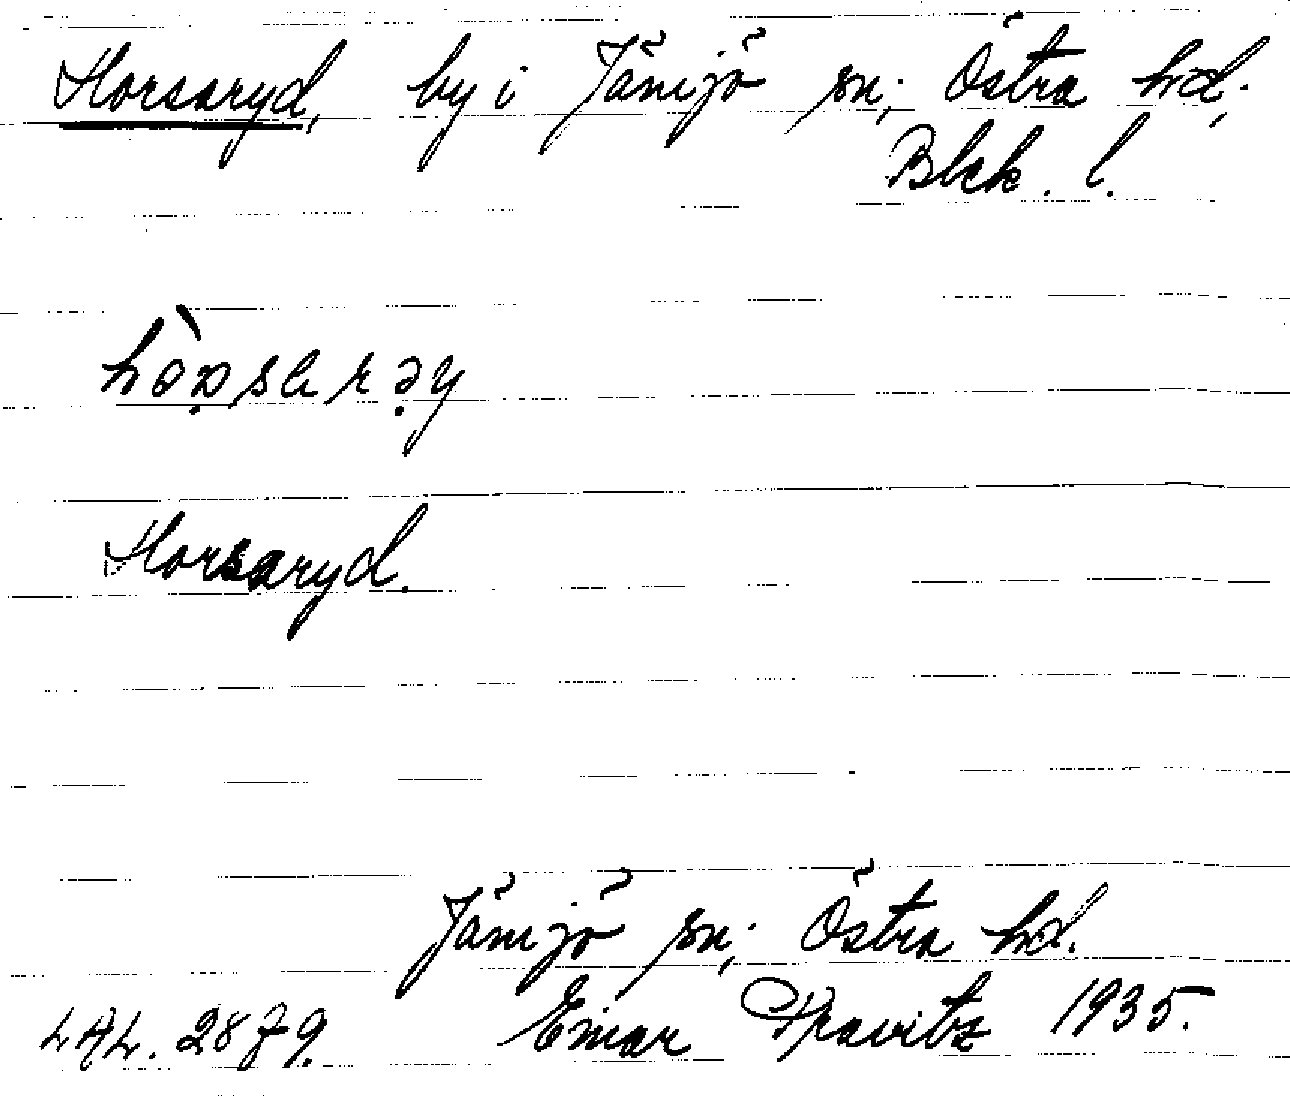 Horsaryd, by i Jämjö sn; Östra hd;
Blek. l.
Horsaryd.
Jämjö sn; Östra hd.
LAL. 2879. Einar Kravitz 1935.